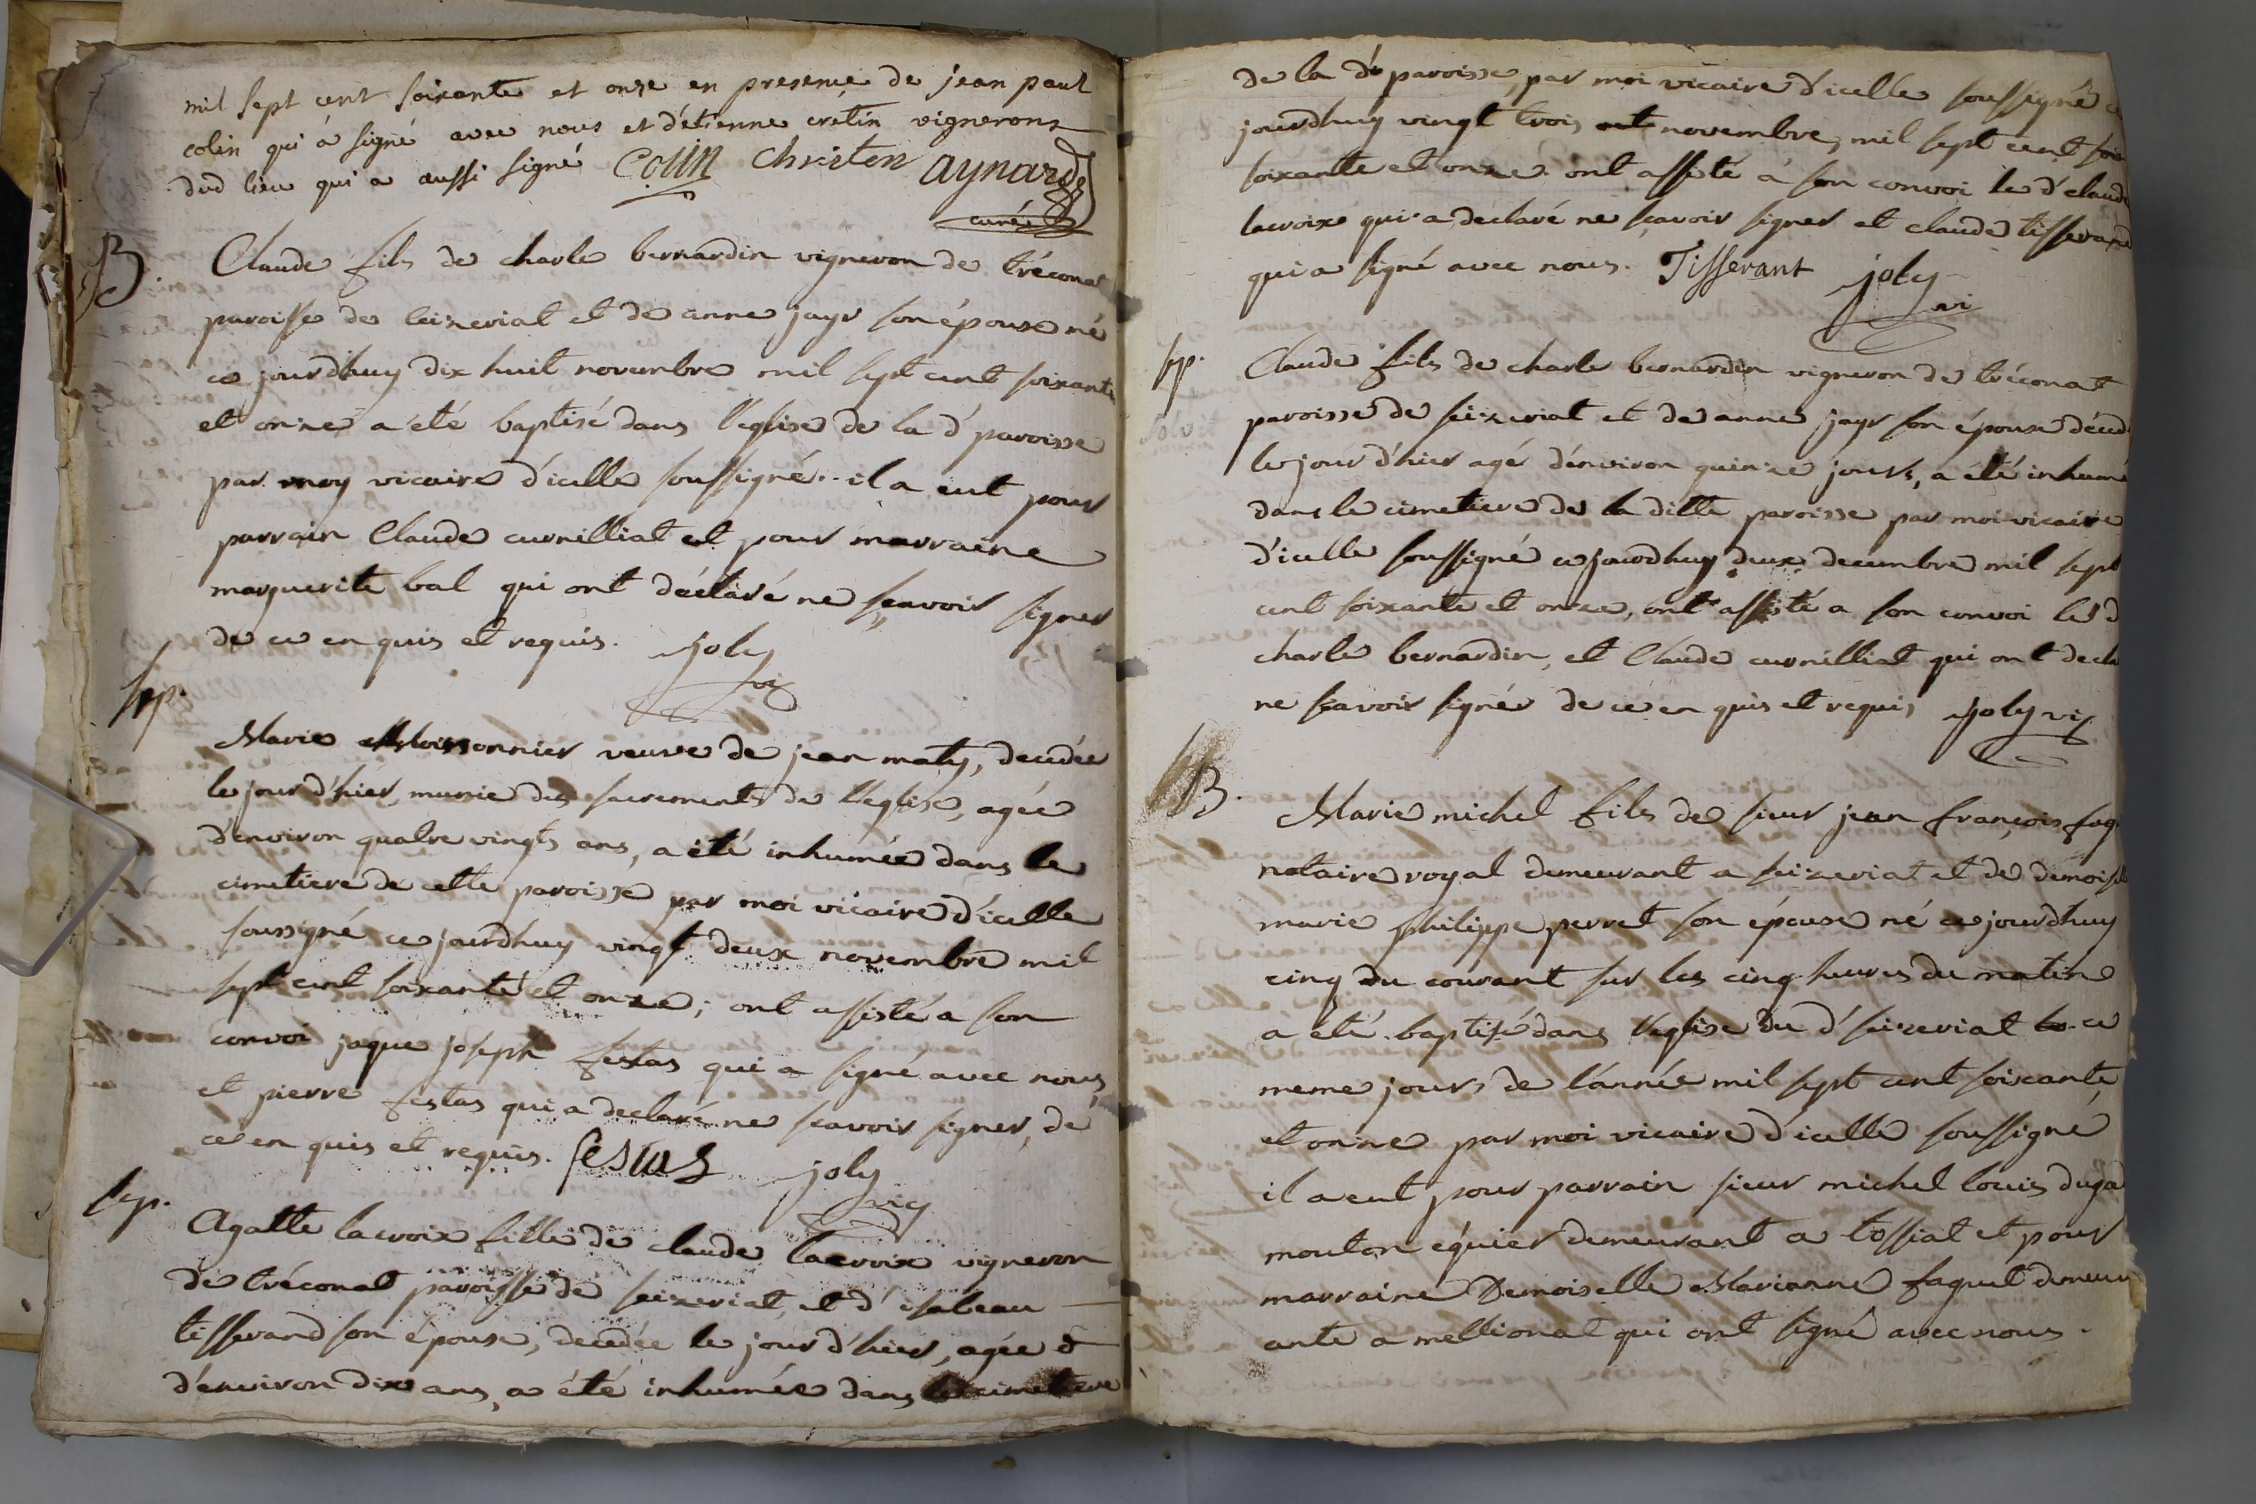 mil sept cent soixante et onze en presence de jean paul
colin qui a signé avec nous et d'étienne cretin vignerons
dud lieu qui a aussi signé Colin Chreiten aynard
curé
B.
Claude fils de charle bernardin vigneron de tréconat
paroisse de seizeriat et de anne jayr son épouse né
ce jourd'huy dix huit novembre mil sept cent soixante
et onze a été baptisé dans l'eglise de la d' paroisse
par moy vicaire d'icelle soussigné. il a eut pour
parrain Claude curnilliat et pour marraine
marguerite bal qui ont déclaré ne sçavoir signer
de ce en quis et requis. joly
vic
sep.
Marie Moissonnier veuve de jean maty, decedée
le jour d'hier, munie des sacrements de l'eglise, agée
d'environ quatre vingts ans, a été inhumée dans le
cimetiere de cette paroisse par moi vicaire d'icelle
soussigné ce jourdhuy vingt deux novembre mil
sept cent soixante et onze; ont assisté a son
convoi jaque joseph festas qui a signé avec nous
et pierre festas qui a declaré ne scavoir signer, de
ce en quis et requis. festas joly
vic
sep.
Agathe lacroix fille de claude lacroix vigneron
de tréconat paroisse de seizeriat, et d' isabeau
tisserand son épouse, decedée le jour d'hier, agée
d'environ dix ans, a été inhumée dans le cimetiere
de la d' paroisse, par moi vicaire d'icelle soussigné ce
jourdhuy vingt trois novembre, mil sept cent soix
soixante et onze. ont assisté a son convoi le d' claude
lacroix qui a declaré ne sçavoir signer et claude tisserand
qui a signé avec nous. Tisserant joly
vi
sep.
Claude fils de charle bernardin vigneron de tréconat
paroisse de seizeriat et de anne jayr son épouse décedé
le jour d'hier agé d'environ quinze jours, a été inhumé
dans le cimetiere de la ditte paroisse par moi vicaire
d'icelle soussigné ce jourdhuy deux decembre mil sept
cent soixante et onze, ont assisté a son convoi les d
charle bernardin, et Claude curnilliat qui ont decla
ne scavoir signer de ce en quis et requis joly vic
B.
Marie michel fils de sieur jean françois
notaire royal demeurant a seizeriat et de demoiselle
marie philippe perret son épouse né ce jourdhuy
cinq du courant sur les cinq heures du matin
a été baptisé dans l'eglise du d' seizeriat ce
meme jours de l'année mil sept cent soixante
et onze par moi vicaire d'icelle soussigné
il a eut pour parrain sieur michel louis duga
mouton équier demeurant a tossiat et pour
marraine Demoiselle Marianne faquet demeur
ante a mellionat qui ont signé avec nous.